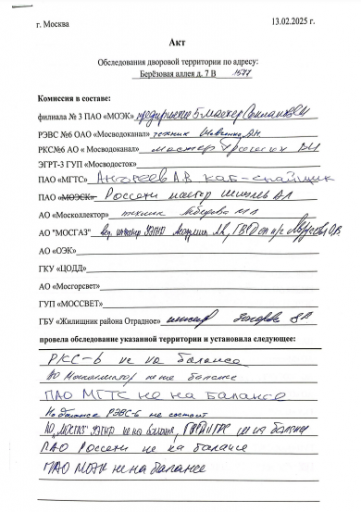 г. Москва 13.02.2025 г.
Акт
Обследования дворовой территории по адресу:
Берёзовая аллея д. 7 В
Комиссия в составе:
филиала № 3 ПАО «МОЭК» мастер
РЭВС №6 ОАО «Мосводоканал» техник
РКС№6 АО « Мосводоканал» мастер
ЭГРТ-3 ГУП «Мосводосток»
ПАО «МГТС» А.В. каб-спайщик
ПАО «МОЭСК» Россети мастер
АО «Москоллектор» техник
АО "МОСГАЗ"
АО «ОЭК»
ГКУ «ЦОДД»
АО «Мосгорсвет»
ГУП «МОССВЕТ»
ГБУ «Жилищник района Отрадное» инженер
провела обследование территории и установила следующее:
РКС-6 не на балансе
АО Москоллектор не на балансе
ПАО МГТС не на балансе
На балансе РЭВС-6 не состоит
АО "МОСГАЗ" не на балансе, не на балансе
ПАО Россети не на балансе
ПАО МОЭК не на балансе